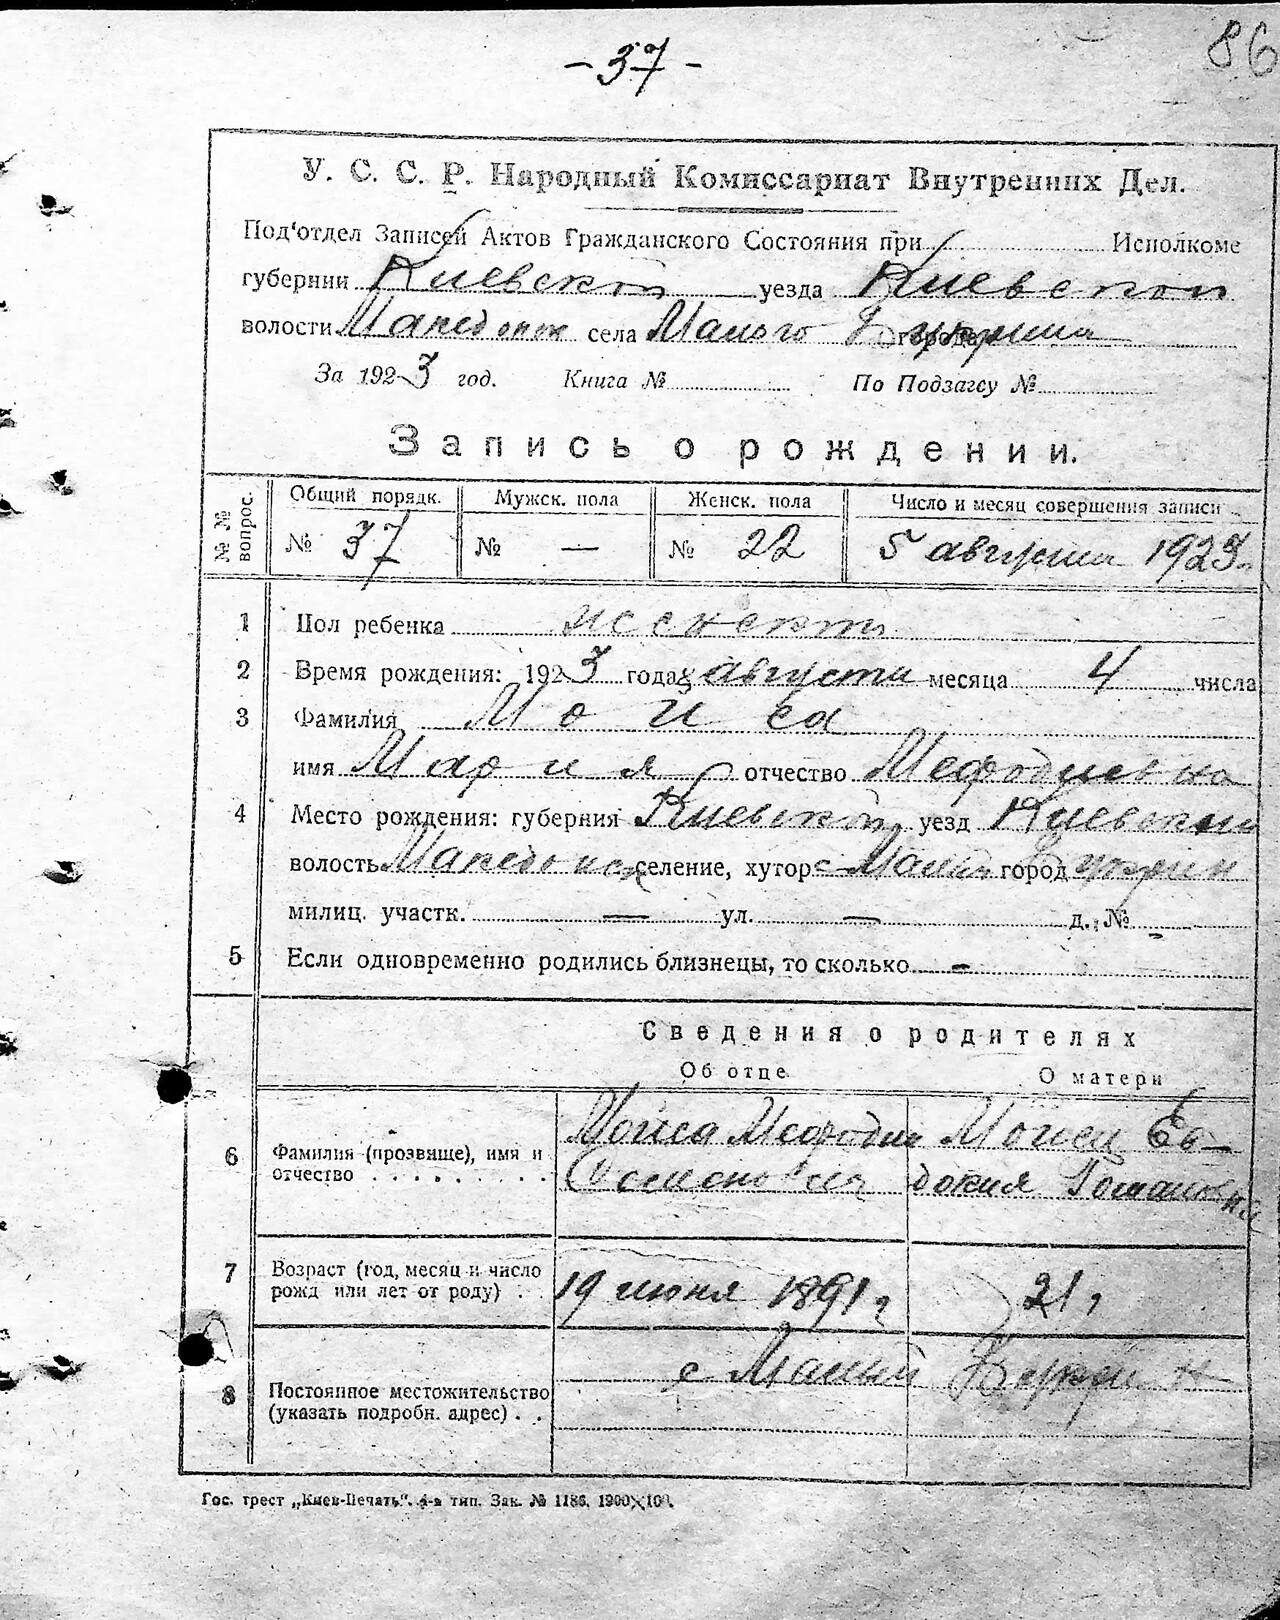 86
- 37 -
У. С. С. Р. Народный Комиссариат Внутренних Дел.
Под'отдел Записей Актов Гражданского Состояния при Исполкоме
губернии Киевской уезда Киевской
волости Македонск села Малого Букрина города
За 1923 год. Книга № По Подзагсу №
Запись о рождении.
№ № вопрос. Общий порядк. Мужск. пола Женск. пола Число и месяц совершения записи
№ 37 № — № 22 5 августа 1923
1 Пол ребенка женский
2 Время рождения: 1923 года августа месяца 4 числа
3 Фамилия Мойса
имя Мария отчество Мефодиевна
4 Место рождения: губерния Киевской уезд Киевский
волость Македонск селение, хутор с Малый город Букрин
милиц. участк. — ул. — д. № -
5 Если одновременно родились близнецы, то сколько -
Сведения о родителях
Об отце О матери
6 Фамилия (прозвище), имя и Мойса Мефодий Мойса Ев-
отчество докия
7 Возраст (год, месяц и число
рожд или лет от роду) 19 июня 1891 г
8 Постоянное местожительство с Малый Букрин
(указать подробн. адрес)
Гос. трест „Киев-Печать". 4-я тип. Зак. № 1186. 1900×100.